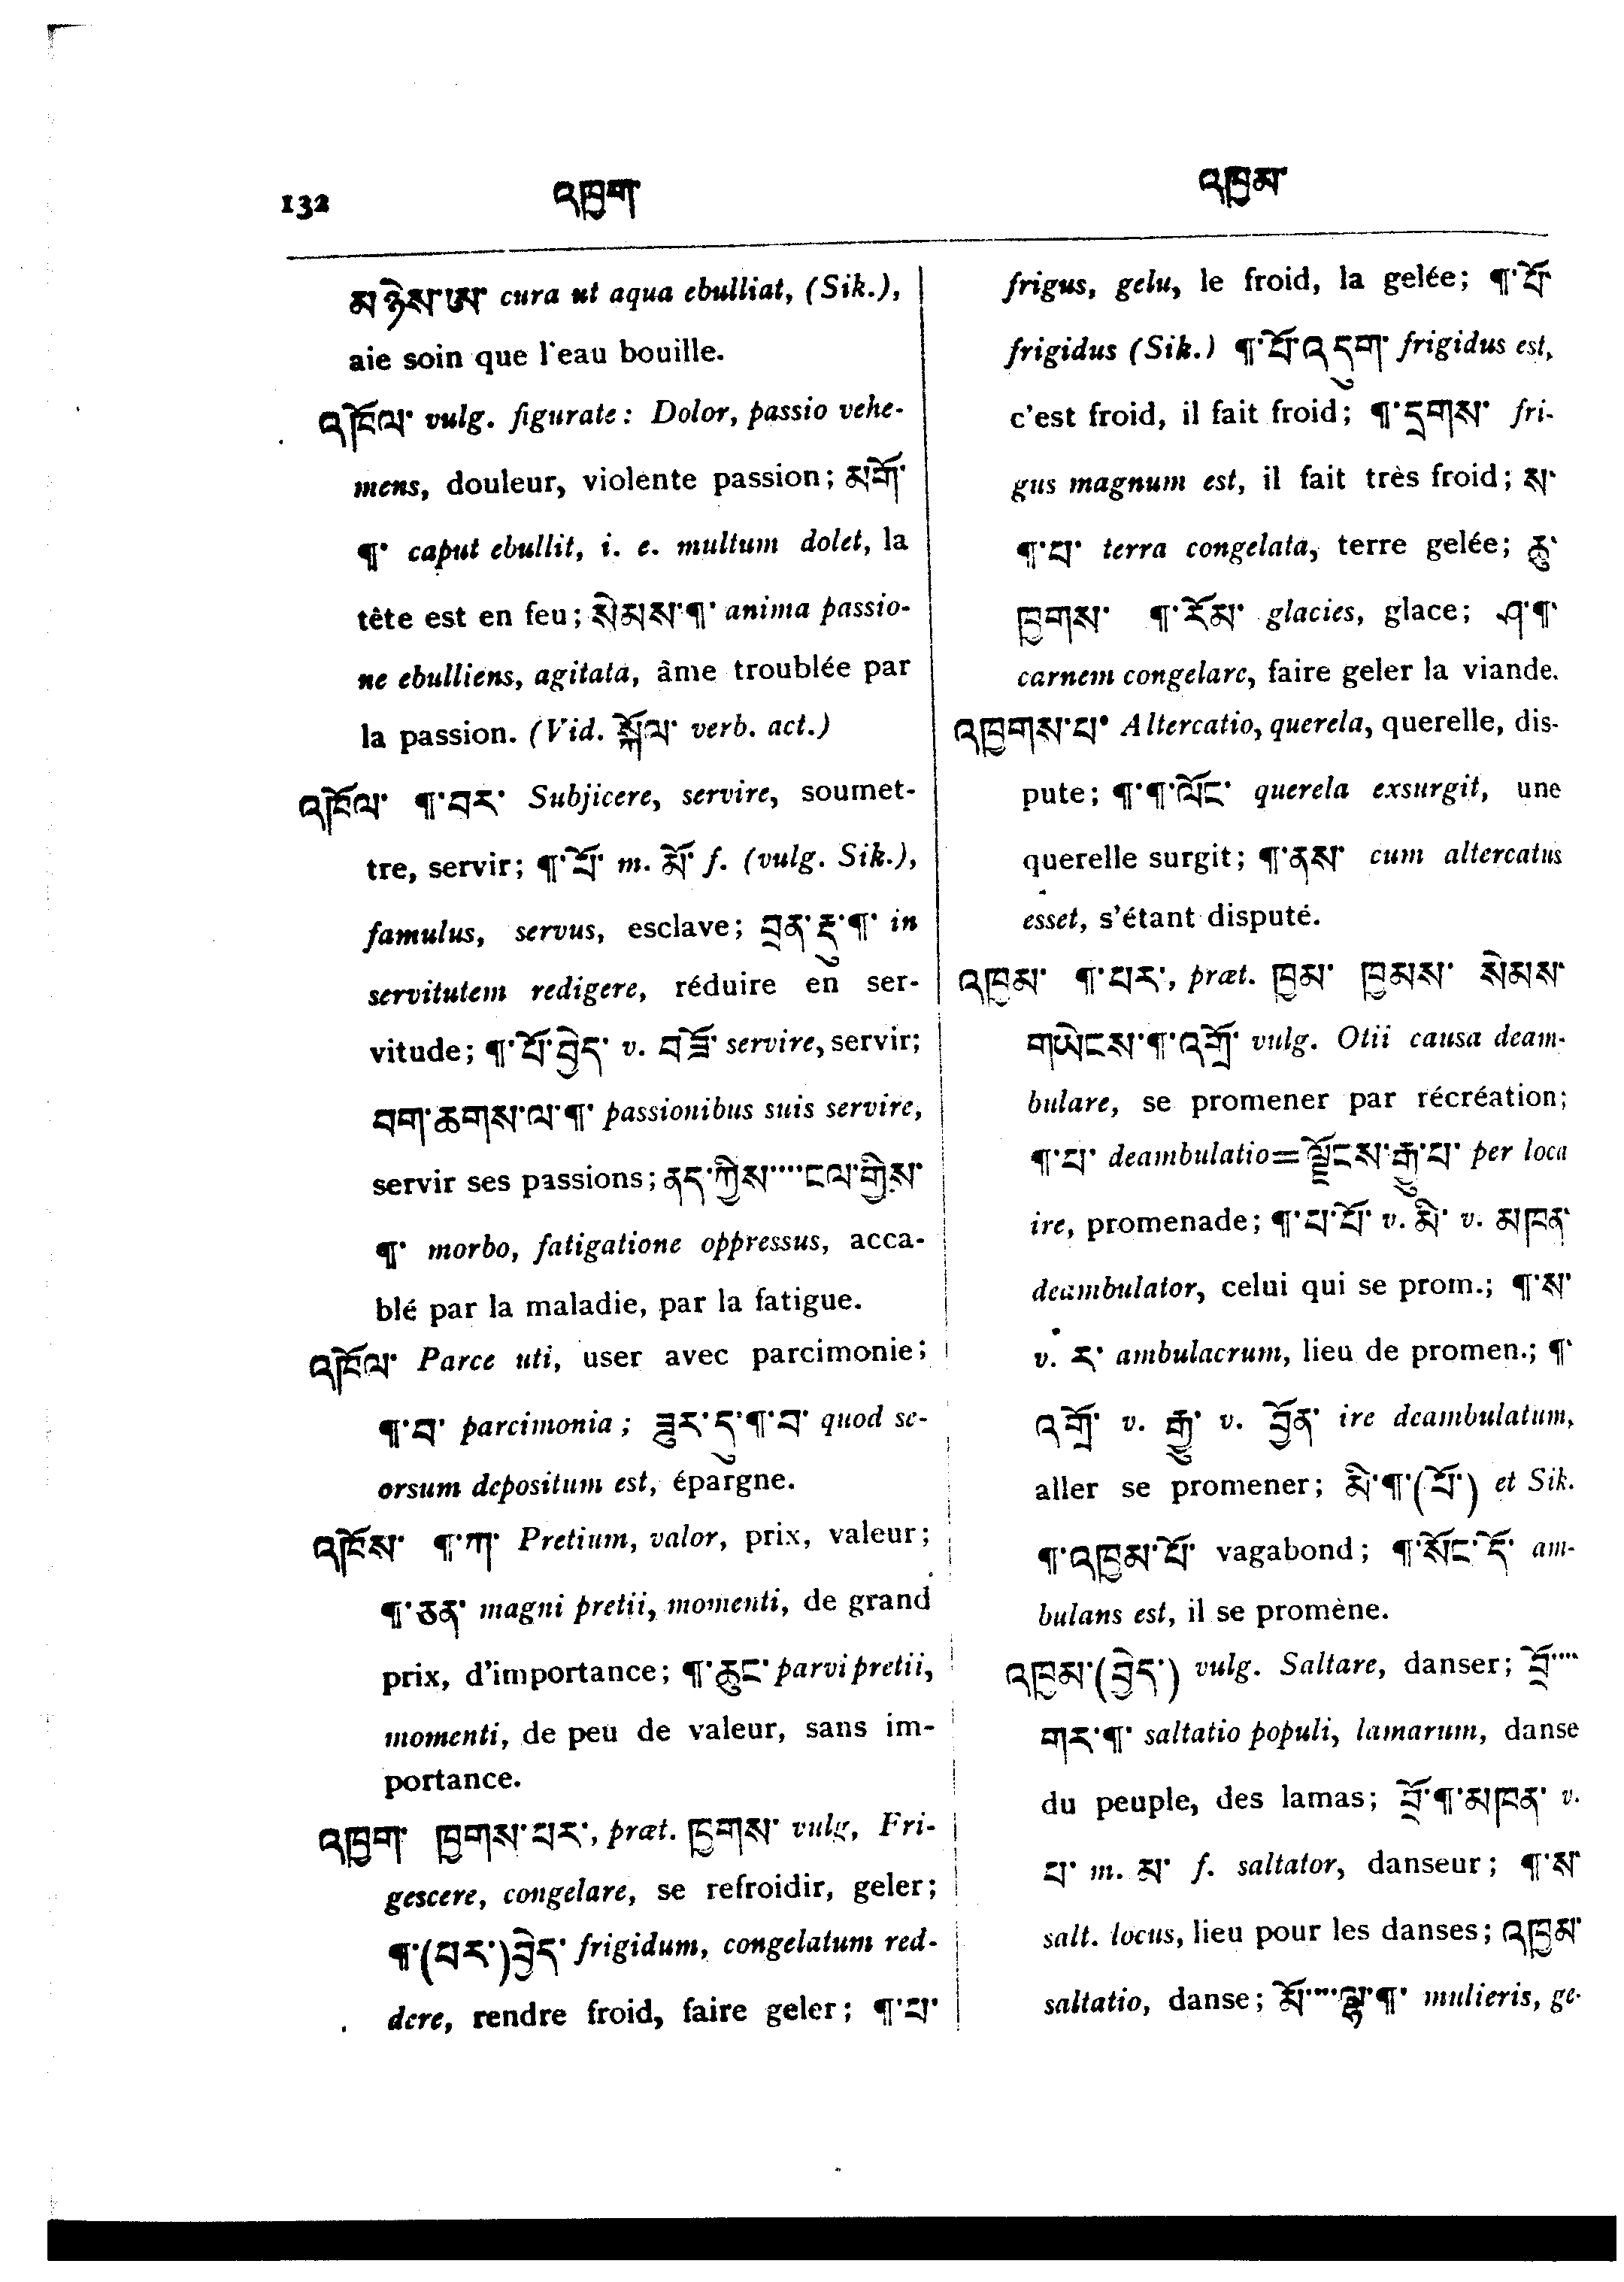 132 འཁྱག་ འཁྱམ་
མ་ཉེས་ཨ་ cura ut aqua ebulliat, (Sik.),
aie soin que l'eau bouille.
འཁོལ་ vulg. figurate: Dolor, passio vehe-
mens, douleur, violente passion; མགོ་
¶་ caput ebullit, i. e. multum dolet, la
tête est en feu; སེམས་¶་ anima passio-
ne ebulliens, agitata, âme troublée par
la passion. (Vid. སྐོལ་ verb. act.)
འཁོལ་ ¶་བར་ Subjicere, servire, soumet-
tre, servir; ¶་པོ་ m. མོ་ f. (vulg. Sik.),
famulus, servus, esclave; བྲན་དུ་¶་ in
servitutem redigere, réduire en ser-
vitude; ¶་པོ་བྱེད་ v. བཟོ་ servire, servir;
བག་ཆགས་ལ་¶་ passionibus suis servire,
servir ses passions; ནད་ཀྱིས་....ངལ་གྱིས་
¶་ morbo, fatigatione oppressus, acca-
blé par la maladie, par la fatigue.
འཁོལ་ Parce uti, user avec parcimonie;
¶་བ་ parcimonia; ཟུར་དུ་¶་བ་ quod se-
orsum depositum est, épargne.
འཁོས་ ¶་ཀ་ Pretium, valor, prix, valeur;
¶་ཅན་ magni pretii, momenti, de grand
prix, d'importance; ¶་ཆུང་ parvi pretii,
momenti, de peu de valeur, sans im-
portance.
འཁྱག་ ཁྱགས་པར་, præt. ཁྱགས་ vulg, Fri-
gescere, congelare, se refroidir, geler;
¶་(པར་)བྱེད་ frigidum, congelatum red-
dere, rendre froid, faire geler; ¶་པ་
frigus, gelu, le froid, la gelée; ¶་པོ་
frigidus (Sik.) ¶་པོ་འདུག་ frigidus est,
c'est froid, il fait froid; ¶་དྲགས་ fri-
gus magnum est, il fait très froid; ས་
¶་པ་ terra congelata, terre gelée; ཆུ་
ཁྱགས་ ¶་རོམ་ glacies, glace; ཤ་¶་
carnem congelare, faire geler la viande.
འཁྱགས་པ་ Altercatio, querela, querelle, dis-
pute; ¶་¶་ལོང་ querela exsurgit, une
querelle surgit; ¶་ནས་ cum altercatus
esset, s'étant disputé.
འཁྱམ་ ¶་པར་, præt. ཁྱམ་ ཁྱམས་ སེམས་
གཡེངས་¶་འགྲོ་ vulg. Otii causa deam-
bulare, se promener par récréation;
¶་པ་ deambulatio=ལྗོངས་རྒྱུ་པ་ per loca
ire, promenade; ¶་པ་པོ་ v. མི་ v. མཁན་
deambulator, celui qui se prom.; ¶་ས་
v. ར་ ambulacrum, lieu de promen.; ¶་
འགྲོ་ v. རྒྱུ་ v. བྱོན་ ire deambulatum,
aller se promener; མི་¶་(པོ་) et Sik.
¶་འཁྱམ་པོ་ vagabond; ¶་སོང་དོ་ am-
bulans est, il se promène.
འཁྱམ་(བྱེད་) vulg. Saltare, danser; བྲོ་....
གར་¶་ saltatio populi, lamarum, danse
du peuple, des lamas; བྲོ་¶་མཁན་ v.
པ་ m. མ་ f. saltator, danseur; ¶་ས་
salt. locus, lieu pour les danses; འཁྱམ་
saltatio, danse; མོ་....ལྷ་¶་ mulieris, ge-